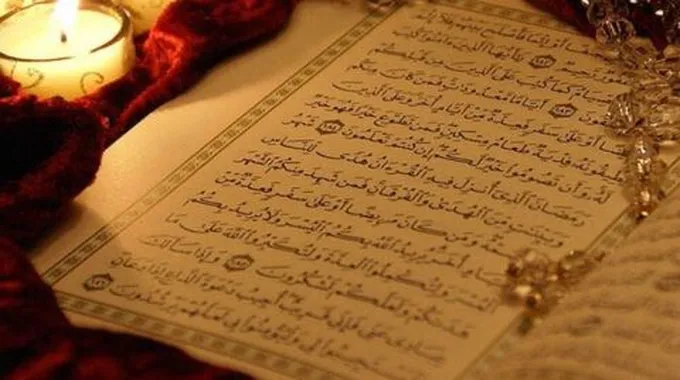 فَأَصْلَحَ بَيْنَهُمْ فَلَآ إِثْمَ
غَفُورٌ رَّحِيمٌ ١٨٢ يَٰٓأَيُّهَا ٱلَّذِينَ ءَامَنُوا۟ كُتِبَ
كَمَا كُتِبَ عَلَى ٱلَّذِينَ مِن قَبْلِكُمْ
١٨٣ أَيَّامًا مَّعْدُودَٰتٍ فَمَن كَانَ مِنكُم
أَوْ عَلَىٰ سَفَرٍ فَعِدَّةٌ مِّنْ أَيَّامٍ أُخَرَ وَعَلَى ٱلَّذِينَ
فِدْيَةٌ طَعَامُ مِسْكِينٍ فَمَن تَطَوَّعَ خَيْرًا فَهُوَ خَيْرٌ
لَّهُۥ وَأَن تَصُومُوا۟ خَيْرٌ لَّكُمْ إِن كُنتُمْ تَعْلَمُونَ ١٨٤ شَهْرُ
رَمَضَانَ ٱلَّذِىٓ أُنزِلَ فِيهِ ٱلْقُرْءَانُ هُدًى لِّلنَّاسِ
وَبَيِّنَٰتٍ مِّنَ ٱلْهُدَىٰ وَٱلْفُرْقَانِ فَمَن شَهِدَ مِنكُمُ ٱلشَّهْرَ
وَمَن كَانَ مَرِيضًا أَوْ عَلَىٰ سَفَرٍ فَعِدَّةٌ مِّنْ
أَيَّامٍ أُخَرَ يُرِيدُ ٱللَّهُ بِكُمُ ٱلْيُسْرَ وَلَا يُرِيدُ بِكُمُ
ٱلْعُسْرَ وَلِتُكْمِلُوا۟ ٱلْعِدَّةَ وَلِتُكَبِّرُوا۟ ٱللَّهَ عَلَىٰ مَا
هَدَىٰكُمْ وَلَعَلَّكُمْ تَشْكُرُونَ ١٨٥ وَإِذَا سَأَلَكَ
عِبَادِى عَنِّى فَإِنِّى قَرِيبٌ أُجِيبُ دَعْوَةَ ٱلدَّاعِ إِذَا دَعَانِ
فَلْيَسْتَجِيبُوا۟ لِى وَلْيُؤْمِنُوا۟ بِى لَعَلَّهُمْ يَرْشُدُونَ ١٨٦